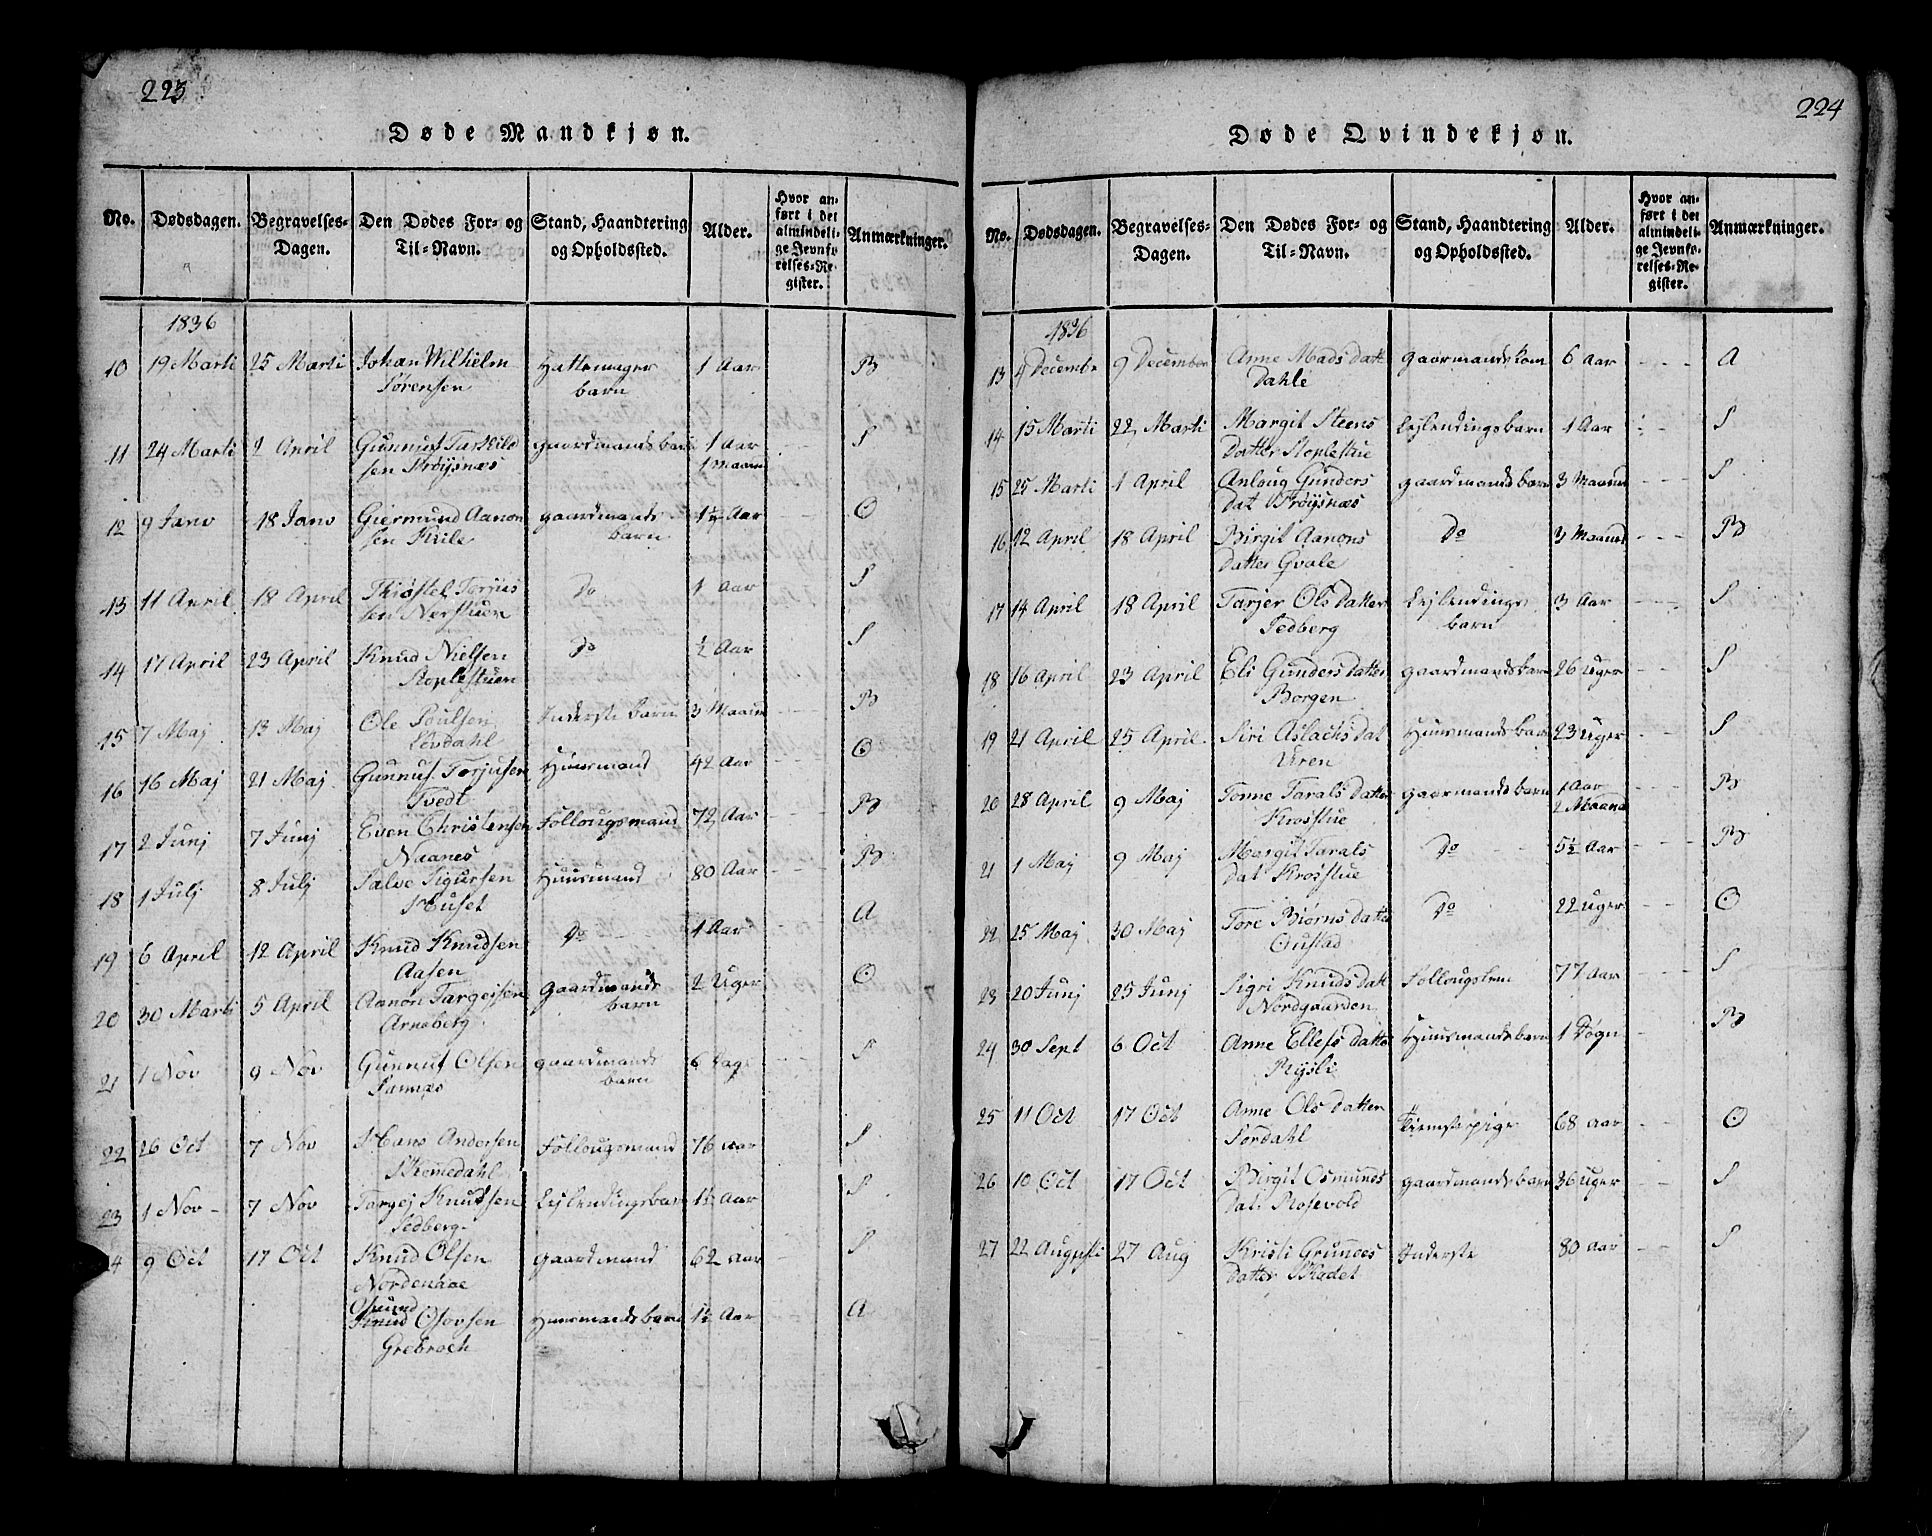 223
Døde Mandkjøn.
No. Dødsdagen. Begravelses-Dagen. Den Dødes For- og Til-Navn. Stand, Haandtering og Opholdssted. Alder. Hvor anført i det almindelige Jevnførelses-Register. Anmærkninger.
1836
10 19 Marti 25 Marti Johan Wilhelm Hattemager 1 Aar B
Sørensen barn
11 24 Marti 2 April Gunnuf Tarkild gaardmands barn 1 Aar S
sen Frøysnæs 1 Maaned
12 9 Janv 18 Janv Giermund Aanon gaardmands 1½ Aar O
sen barn
13 11 April 18 April Thiøstel Torjus Do 1 Aar S
sen Nerstuen
14 17 April 23 April Knud Nielsen Do ½ Aar S
Stoplestuen
15 7 Maj 13 Maj Ole Poulsen Inderste barn 3 Maaned B
Løvdahl
16 16 Maj 21 Maj Gunnuf Torjusen Huusmand 42 Aar O
Tvedt
17 2 Junj 7 Junj Even Christensen Follougsmand 72 Aar B
Naanes
18 1 Julj 8 Julj Salve Sigursen Huusmand 80 Aar B
Huset
19 6 April 12 April Knud Knudsen Do 1 Aar A
Aasen
20 30 Marti 5 April Aanon Targeisen Gaardmands 2 Uger O
Arneberg barn
21 1 Nov 9 Nov Gunnuf Olsen gaardmands 6 Dage S
barn
22 26 Oct 7 Nov Hans Andersen Follougsmand 76 aar S
Skomedahl
23 1 Nov 7 Nov Torgej Knudsen Lejlendingsbarn 1½ Aar S
Sedberg
24 9 Oct 17 Oct Knud Olsen gaardmand 62 aar S
Nordenaae
Osmund
Knud Osovsen Huusmands barn 1½ Aar A
Grebroch
224
Døde Qvindekjøn.
No. Dødsdagen. Begravelses-Dagen. Den Dødes For- og Til-Navn. Stand, Haandtering og Opholdssted. Alder. Hvor anført i det almindelige Jevnførelses-Register. Anmærkninger.
1836
13 4 Decembr 9 December Anne Mads datt gaarmands kone 6 Aar A
Dahle
14 15 Marti 22 Marti Margit Steens Lejlendingsbarn 1 Aar S
Datter Stoplestue
15 25 Marti 1 April Anloug Gunders gaardmands barn 3 Maaned S
dat Frøysnæs
16 12 April 18 April Birgit Aanons Do 3 Maaned B
datter Qvale
17 14 April 18 April Tarjer Ols datter Lejlendings 3 Aar S
Sedberg barn
18 16 April 23 April Eli Gunders datter gaardmands barn 26 Uger S
Borgen
19 21 April 25 April Siri Aslachs dat Huusmands barn 23 Uger S
Uren
20 28 April 9 Maj Tonne Tarals datter gaarmands barn 1 Aar B
Krosstue 2 Maaned
21 1 Maj 9 Maj Margit Tarals Do 5½ Aar B
dat Krosstue
22 25 Maj 30 Maj Tore Biørns datter Do 22 Uger O
Oustad
23 20 Junj 25 Junj Sigri Knuds datt Follougskone 77 Aar S
Nordgaarden
24 30 Sept 6 Oct Anne Ellefs datter Huusmands barn 1 Døgn B
Rysli
25 11 Oct 17 Oct Anne Ols datter Tienestepige 68 aar O
Sordahl
26 10 Oct 17 Oct Birgit Osmunds gaardmands barn 36 uger S
dat. Rosevold
27 22 Augusti 27 Aug Kristi Grunees Inderste 80 aar S
datter Skadet